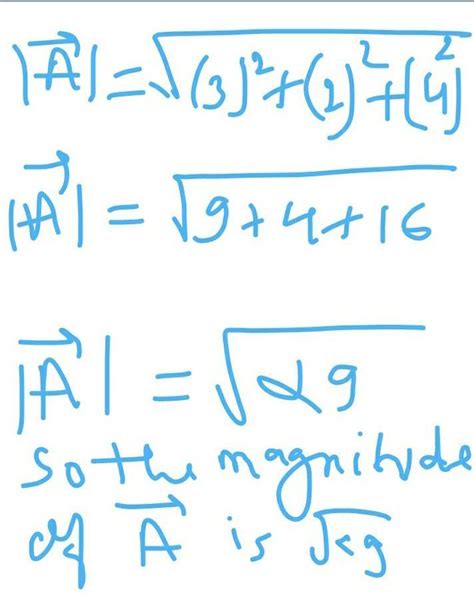 |A⃗| = √(3)²+(2)²+(4)²
|A⃗| = √9+4+16
|A⃗| = √29
so the magnitude
of A⃗ is √29